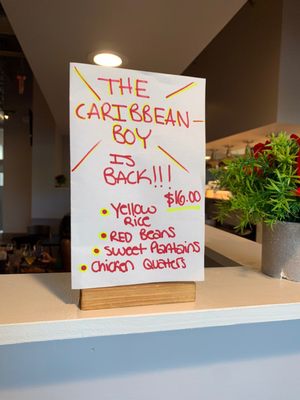 THE
CARIBBEAN-
BOY
IS
BACK!!!
$16.00
Yellow
Rice
RED Beans
Sweet Plantains
Chicken Quaters